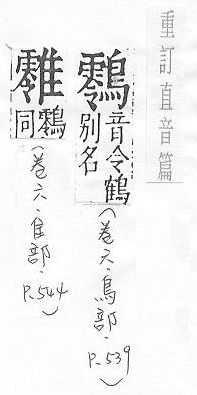 重訂直音篇
䴇 音令鶴
別名
（卷六．鳥部．P.539）
同
（卷六．隹部．P.544）